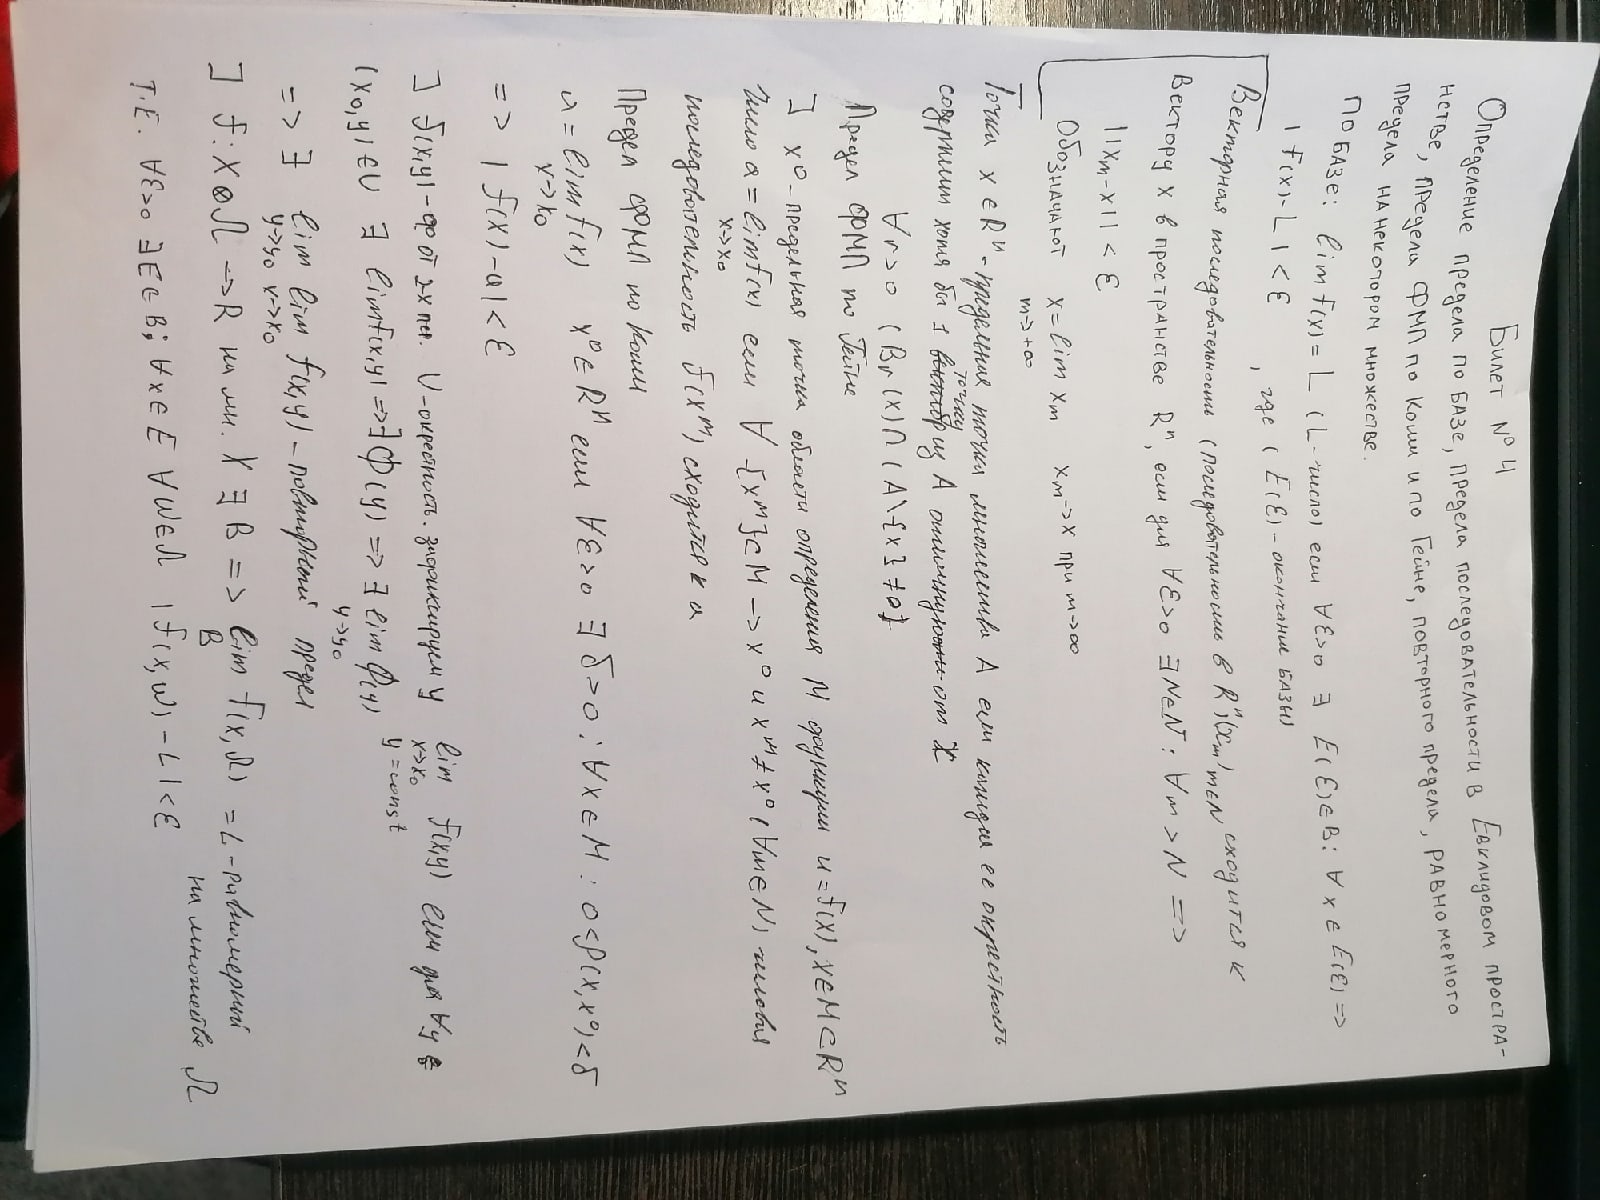 Билет № 4
Определение предела по базе, предела последовательности в Евклидовом простра-
нстве, предела ФМП по Коши и по Гейне, повторного предела, равномерного
предела на некотором множестве.
По базе: lim f(x) = L (L - число) если ∀ε>0 ∃ E(ε)∈B: ∀x∈E(ε) =>
|f(x)-L| < ε , где (E(ε) - окончание базы)
Векторная последовательность (последовательность в Rⁿ) {xm} m∈N сходится к
вектору x в пространстве Rⁿ, если для ∀ε>0 ∃N∈N: ∀m>N =>
||xm-x|| < ε
Обозначают x = lim xm xm->x при m->∞
m->+∞
Точка x∈Rⁿ - предельная точка множества A если каждая ее окрестность
содержит хотя бы 1 точку из A отличную от x
∀r>0 (Br(x)∩(A\{x}≠∅}
Предел ФМП по Гейне
] x⁰ - предельная точка области определения M функции u=f(x), x∈M⊂Rⁿ
Число a = lim f(x) если ∀ {xᵐ}⊂M -> x⁰ и xᵐ≠x⁰ (∀m∈N) числовая
x->x₀
последовательность f(xᵐ) сходится к a
Предел ФМП по Коши
a = lim f(x) x⁰∈Rⁿ если ∀ε>0 ∃δ>0: ∀x∈M: 0<ρ(x,x⁰)<δ
x->x₀
=> |f(x)-a| < ε
] f(x,y) - ф от 2х пер. U - окрестность. зафиксируем y lim f(x,y) если для ∀y
x->x₀
y=const
(x₀,y)∈U ∃ lim f(x,y) => ∃ φ(y) => ∃ lim φ(y)
y->y₀
=> ∃ lim lim f(x,y) - повторный предел
y->y₀ x->x₀
] f: X⊗Ω -> R на мн. X ∃ B => lim f(x,Ω) = L - равномерный
B
на множестве Ω
Т.Е. ∀ε>0 ∃E∈B; ∀x∈E ∀w∈Ω |f(x,w)-L|<ε